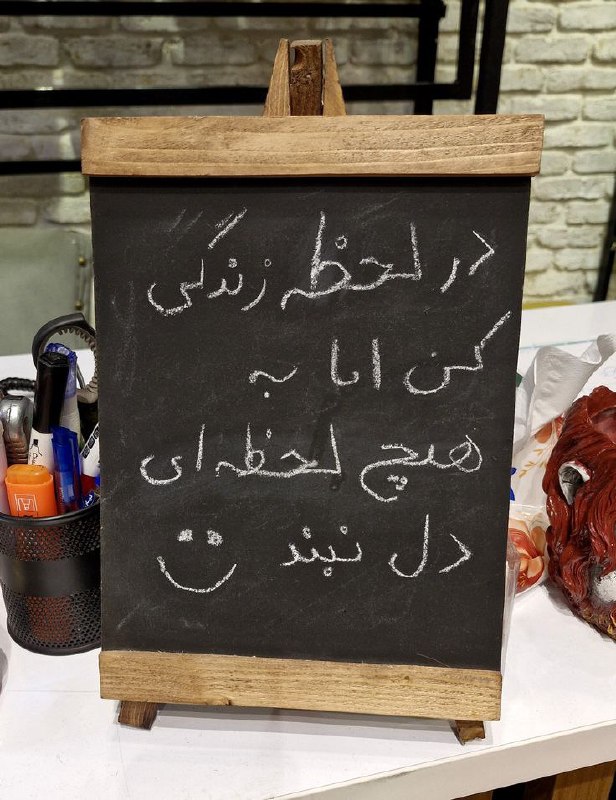 در لحظه زندگی
کن اما به
هیچ لحظه ای
دل نبند